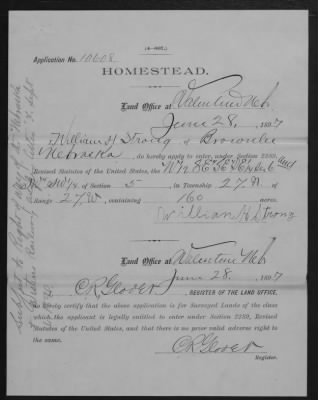 (4-007.)
Application No. 10608
HOMESTEAD.
Land Office at Valentine Neb.
June 28, 1897
I, William H Strong of Brownlee
Nebraska, do hereby apply to enter, under Section 2289,
Revised Statutes of the United States, the
of Section 5, in Township 27 N. of
Range 27 W., containing 160 acres.
William H Strong
Land Office at Valentine Neb.
June 28, 1897
I, C R Glover, REGISTER OF THE LAND OFFICE,
do hereby certify that the above application is for Surveyed Lands of the class
which the applicant is legally entitled to enter under Section 2289, Revised
Statutes of the United States, and that there is no prior valid adverse right to the
same.
C R Glover
Register.
Subject to Right of Way of